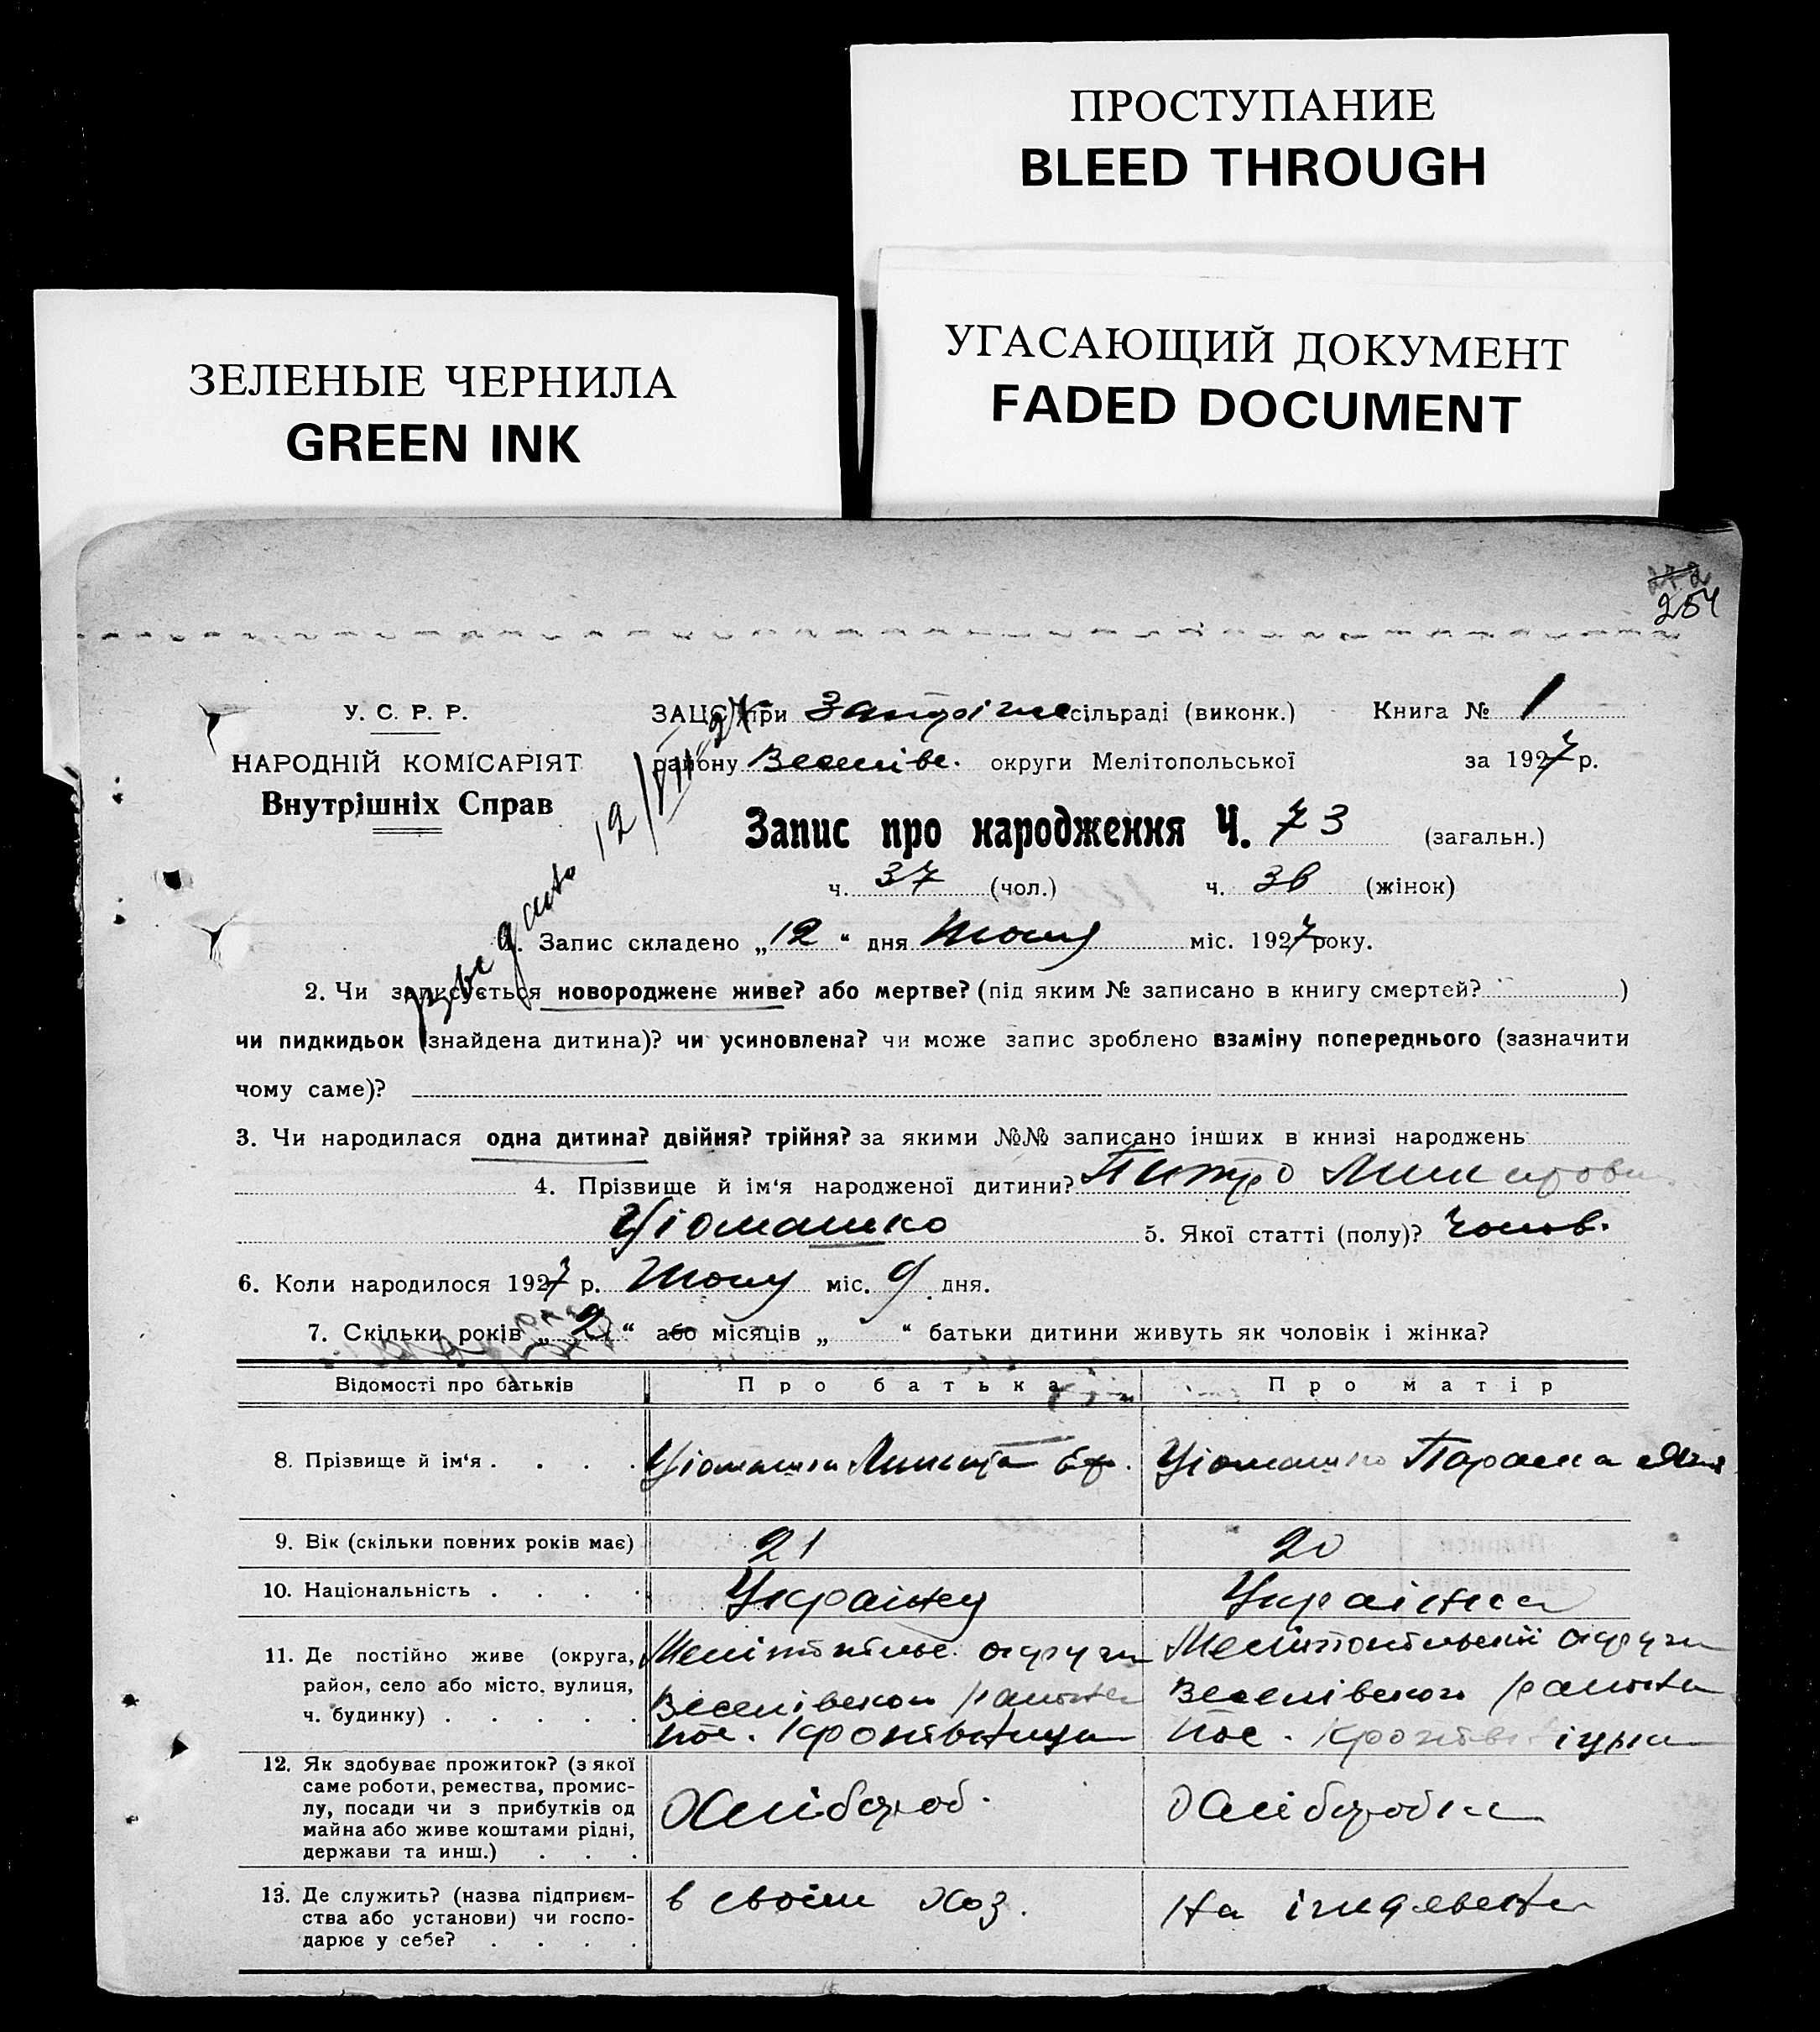 ПРОСТУПАНИЕ
BLEED THROUGH
УГАСАЮЩИЙ ДОКУМЕНТ
FADED DOCUMENT
ЗЕЛЕНЫЕ ЧЕРНИЛА
GREEN INK
272
254
У. С. Р. Р.
НАРОДНІЙ КОМІСАРІЯТ
Внутрішніх Справ
ЗАЦС при сільраді (виконк.) Книга № 1
району Веселівс. округи Мелітопольської за 1927 р.
Запис про народження Ч. 73 (загальн.)
ч. 37 (чол.) ч. 36 (жінок)
12/VIII-27
1. Запис складено „12“ дня міс. 1927 року.
2. Чи записується новороджене живе? або мертве? (під яким № записано в книгу смертей? )
чи пидкидьок (знайдена дитина)? чи усиновлена? чи може запис зроблено взаміну попереднього (зазначити
чому саме)?
3. Чи народилася одна дитина? двійня? трійня? за якими №№ записано інших в книзі народжень
4. Прізвище й ім‘я народженої дитини? Питро
5. Якої статті (полу)? Чолов.
6. Коли народилося 1927 р. міс. 9 дня.
7. Скільки років „2“ або місяців „ “ батьки дитини живуть як чоловік і жінка?
Відомості про батьків Про батька Про матір
8. Прізвище й ім‘я . . . . Микита Параска
9. Вік (скільки повних років має) 21 20
10. Національність . . . . Українец Українка
11. Де постійно живе (округа, Мелітопільс. округи Мелітопільської округи
район, село або місто, вулиця, Веселівского района Веселівского района
ч. будинку) . . . . . пос.  пос.
12. Як здобуває прожиток? (з якої
саме роботи, ремества, промис-
лу, посади чи з прибутків од Хлібороб. Хліборобка
майна або живе коштами рідні,
держави та инш.) . . .
13. Де служить? (назва підприєм- в своїм хоз. На
ства або установи) чи госпо-
дарює у себе? . . . .